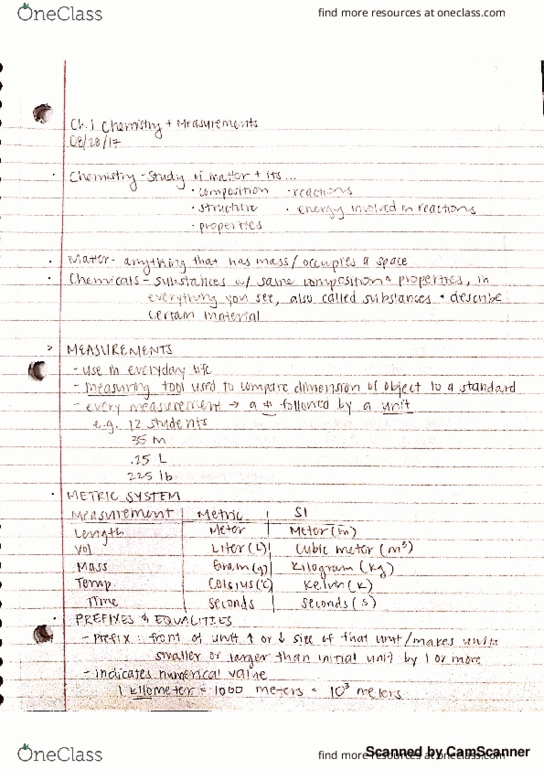 OneClass
find more resources at oneclass.com
Ch. 1 Chemistry + Measurements
08/28/17
· Chemistry - Study of matter + its...
· composition · reactions
· structure · energy involved in reactions
· properties
· Matter - anything that has mass/occupies a space
· Chemicals - substances w/ same composition + properties, in
everything you see, also called substances + describe
certain material
MEASUREMENTS
- use in everyday life
- measuring tool used to compare dimension of object to a standard
- every measurement → a # followed by a unit
e.g. 12 students
35 M
.25 L
225 lb
· METRIC SYSTEM
Measurement Metric SI
Length Meter Meter (m)
Vol Liter (L) Cubic meter (m³)
Mass Gram (g) Kilogram (kg)
Temp. Celsius (°C) Kelvin (K)
Time seconds seconds (s)
· PREFIXES & EQUALITIES
- Prefix: front of unit ↑ or ↓ size of that unit/makes units
smaller or larger than initial unit by 1 or more
- indicates numerical value
1 kilometer = 1000 meters = 10³ meters
OneClass
find more resources at oneclass.com
Scanned by CamScanner